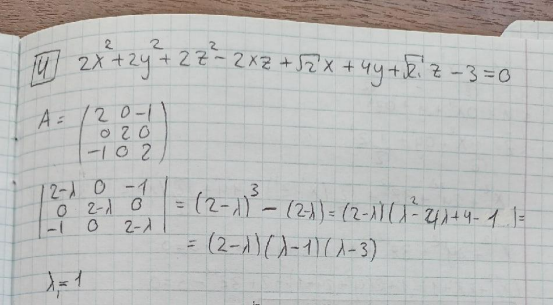 4 2x²+2y²+2z²-2xz+√2x+4y+√2z-3=0
A= (2 0 -1
0 2 0
-1 0 2)
|2-λ 0 -1
0 2-λ 0
-1 0 2-λ| = (2-λ)³-(2-λ)=(2-λ)(λ²-4λ+4-1)=
=(2-λ)(λ-1)(λ-3)
λ₁=1